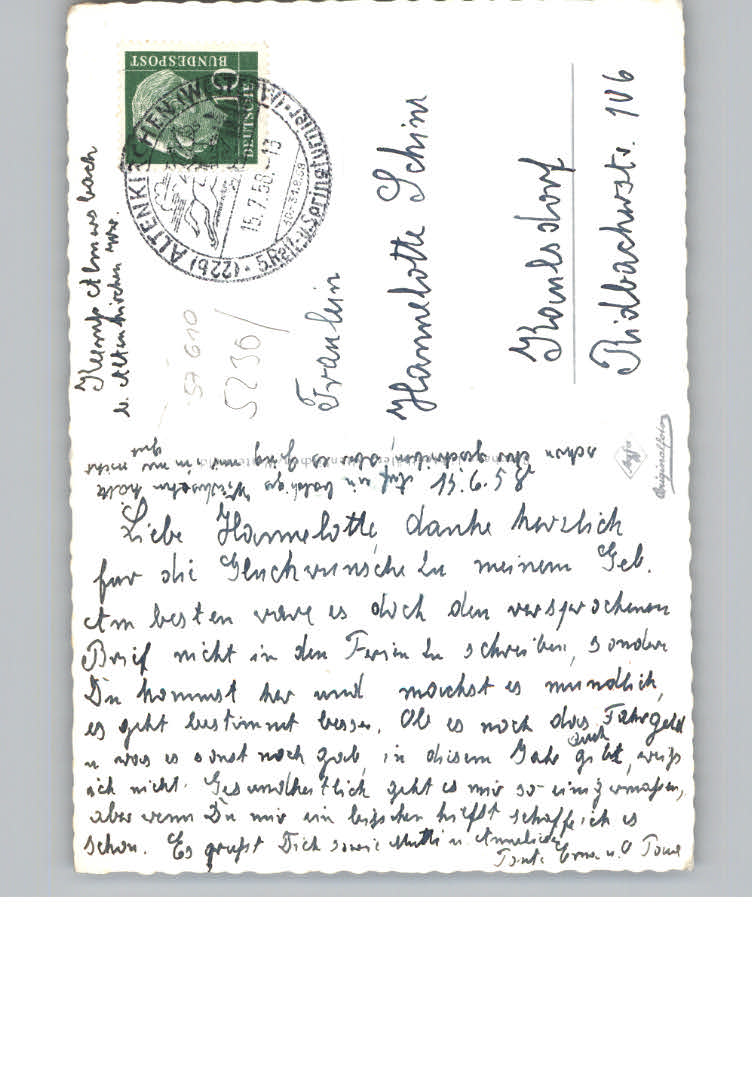 BUNDESPOST
(22b) ALTENKIRCHEN (WESTERW)
15.7.58.-13
5. Reit- u. Springturnier
Kemp Almersbach
b. Altenkirchen ww.
57610
5230/
Fraulein
Hannelotte Schirn
Raulsdorf
Ridbachwstr. 106
Agfa
Originalfoto
13.6.58
Auf ein baldiges Wiedersehn hätte
schon eher geschrieben, aber es ging mir nicht gut
Liebe Hannelotte, danke herzlich
für die Gluckwunsche zu meinem Geb.
Am besten ware es doch den versprochenen
Brief nicht in den Ferien zu schreiben, sondern
Du kommst her und machst es mundlich,
es geht bestimmt besser. Ob es noch das Fahrgeld
u was es sonst noch gab, in diesem Jahr auch gibt, weiß
ich nicht. Gesundheitlich geht es mir so einigermaßen,
aber wenn Du mir ein bißchen hilfst schaffe ich es
schon. Es grußt Dich sowie Mutti u. Anneliese
Tante Erna u. O